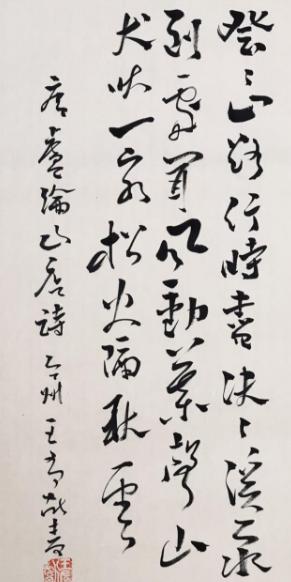 登〻山路行時盡决〻溪泉
到處聞風動葉聲山
犬吠一家松火隔秋雲
唐盧綸山店詩 州王書